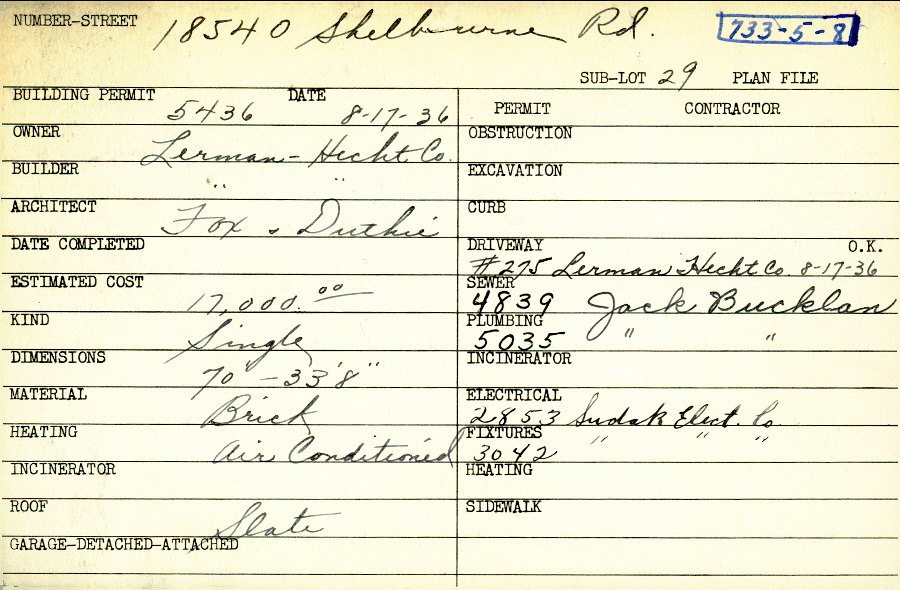 NUMBER-STREET 18540 Shelburne Rd. 733-5-8
SUB-LOT 29 PLAN FILE
BUILDING PERMIT 5436 DATE 8-17-36
PERMIT CONTRACTOR
OWNER Lerman-Hecht Co.
OBSTRUCTION
BUILDER " "
EXCAVATION
ARCHITECT Fox & Duthie
CURB
DATE COMPLETED
DRIVEWAY O.K.
#275 Lerman Hecht Co. 8-17-36
ESTIMATED COST 17,000.00
SEWER
4839 Jack Bucklan
KIND Single
PLUMBING
5035 " "
DIMENSIONS 70' - 33'8"
INCINERATOR
MATERIAL Brick
ELECTRICAL
2853 Sudak Elect. Co.
HEATING Air Conditioned
FIXTURES " " "
3042
INCINERATOR
HEATING
ROOF Slate
SIDEWALK
GARAGE-DETACHED-ATTACHED